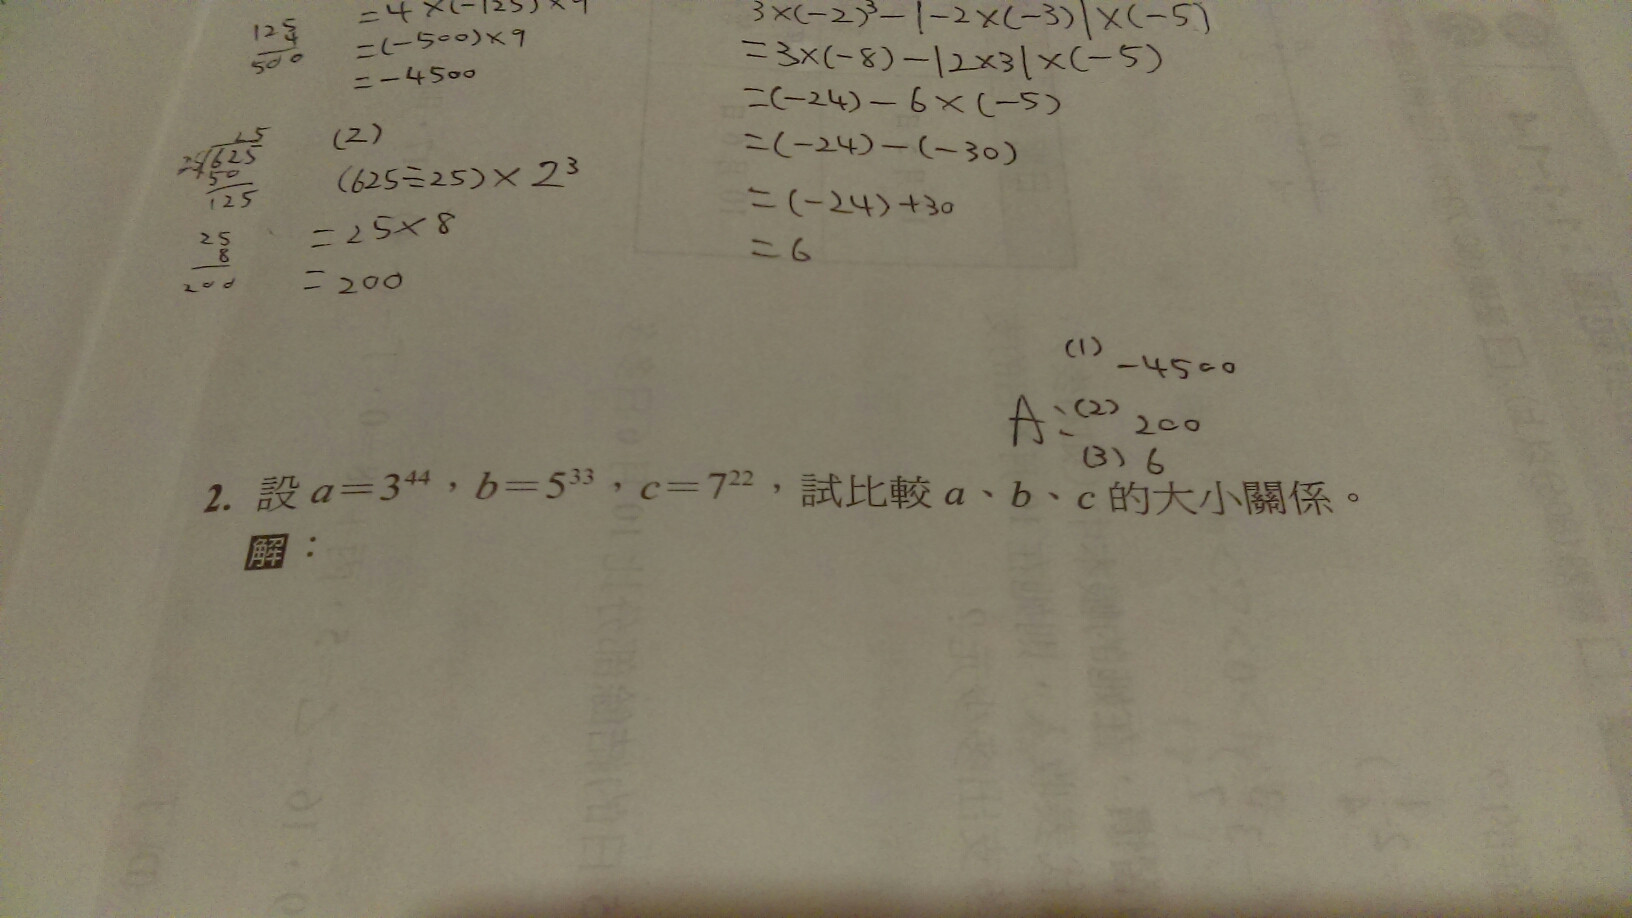 =4×(-125)×9
125
4
500
=(-500)×9
=-4500
25
25√625
50
125
(2)
(625÷25)×2³
25
8
200
=25×8
=200
3×(-2)³-|-2×(-3)|×(-5)
=3×(-8)-|2×3|×(-5)
=(-24)-6×(-5)
=(-24)-(-30)
=(-24)+30
=6
(1) -4500
A:(2) 200
(3) 6
2. 設 a=3⁴⁴,b=5³³,c=7²²,試比較 a、b、c 的大小關係。
解: